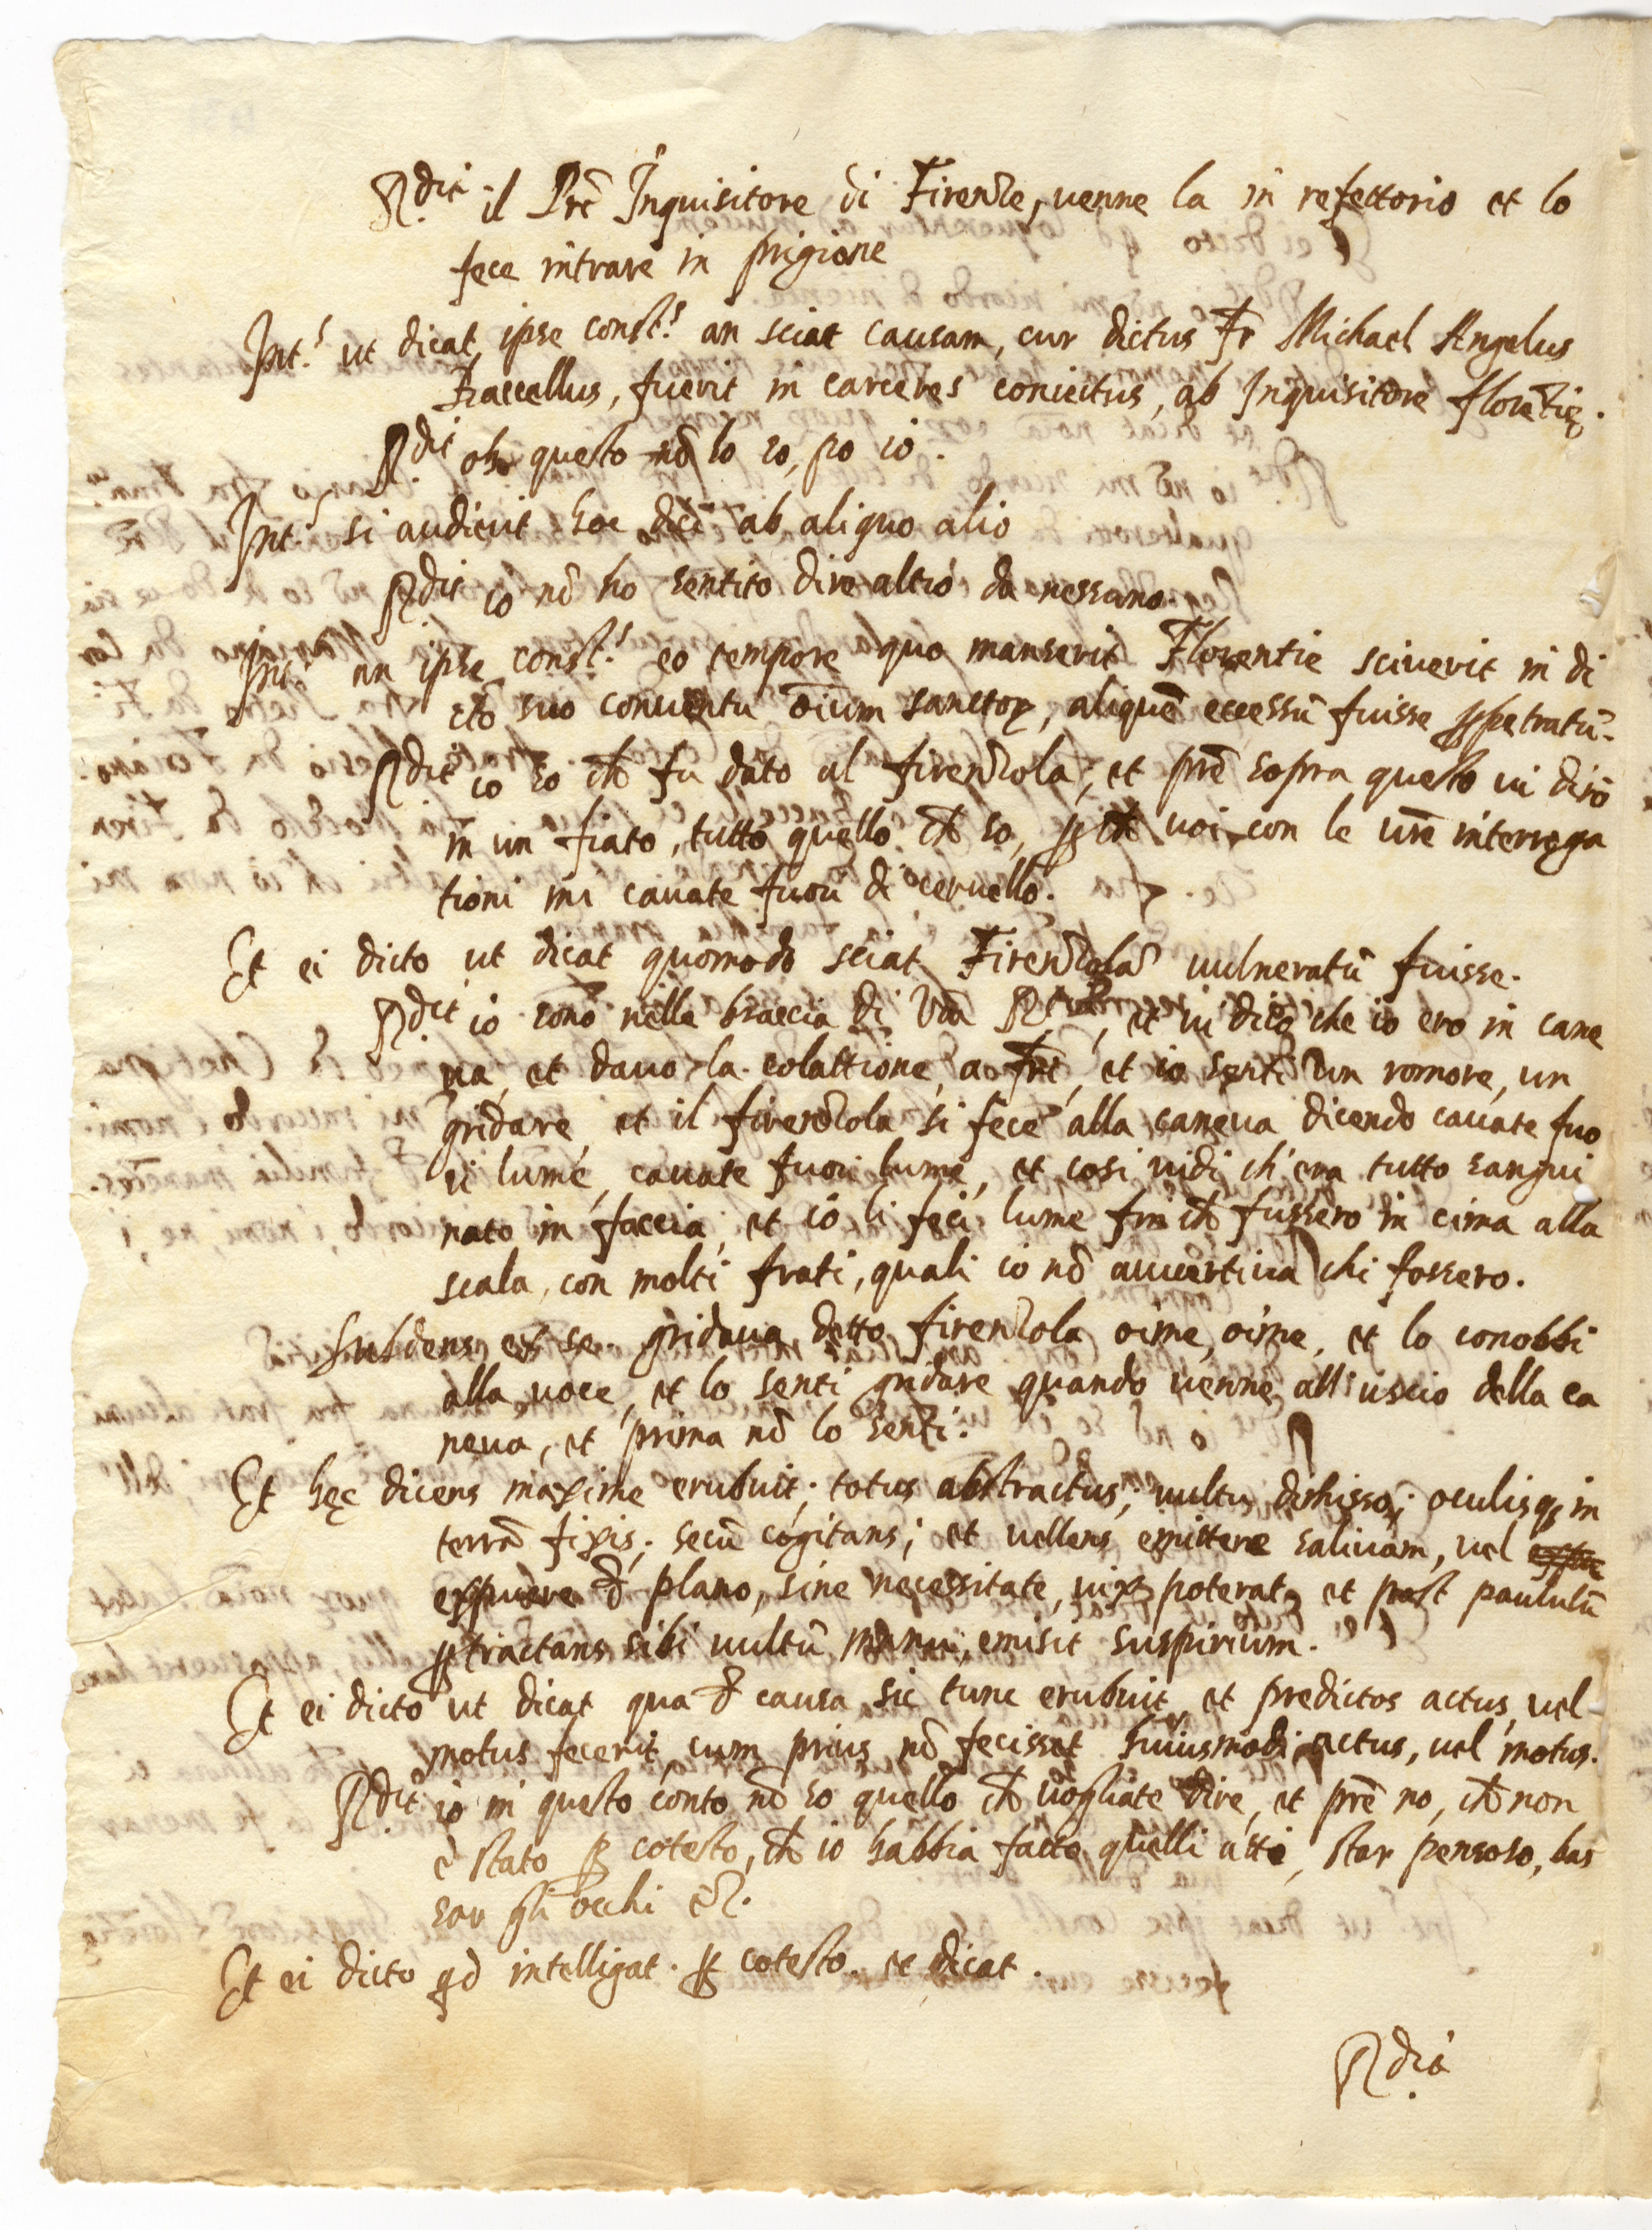 R.dit il Prē Inquisitore di Firenze, uenne la in refettorio et lo
fece intrare in prigione
Int.s ut dicat, ipse const.s an sciat causam, cur dictus Fr Michael Angelus
Baccellus, fuerit in carceres coniectus, ab Inquisitore florētię.
R.dit oh questo nō lo so, po io.
Int.s si audiuit hoc dici ab aliquo alio
R.dit io nō ho sentito dire altro da nessuno.
Int.s an ipse const.s eo tempore quo manserit Florentie sciuerit in di
cto suo conuentu oīum sanctoꝝ, aliquē eccessū fuisse ꝑpetratū.
R.dit io so ch̄ fu dato al firenzola, et prē sopra questo ui dirò
in un fiato, tutto quello ch̄ so, ꝑ ch̄ uoi con le vrē interroga
tioni mi cauate fuori di ceruello.
Et ei dicto ut dicat quomodo sciat Firenzolā uulneratū fuisse.
R.dit io sono nelle braccia di Vrā R, et ui dico che io ero in cane
ua, et dauo la colattione, a frī, et io senti un romore, un
gridare, et il firenzola si fece alla caneua dicendo cauate fuo
ri lume, cauate fuori lume, et cosi uidi, ch'era tutto sangui
nato in faccia, et io li feci lume fin ch̄ fussero in cima alla
scala, con molti frati, quali io nō auuertiua chi fossero.
Subdens ex se. gridaua detto firenzola oime, oime, et lo conobbi
alla uoce, et lo senti gridare quando uenne all'uscio della ca
neua, et prima nō lo senti.
Et hęc dicens maxime erubuit; totus abstractus, uultu dimisso; oculisqꝫ in
terrā fixis; secū cogitans; et uellens emittere saliuam, uel
expuere d plano, sine necessitate, uix poterat, et post paululū
ꝑtractans sibi uultū manu, emisit suspirium.
Et ei dicto ut dicat qua d causa sic tunc erubuit, et predictos actus, uel
motus fecerit, cum prius nō fecisset huiusmodi actus, uel motus.
R.dit io in questo conto nō so quello ch̄ uogliate dire, et prē no, ch̄ non
è stato ꝑ cotesto, ch̄ io habbia fatto quelli atti, star pensoso, bas
sar gli occhi &.
Et ei dicto qd intelligat. ꝑ cotesto. et dicat.
R.dit